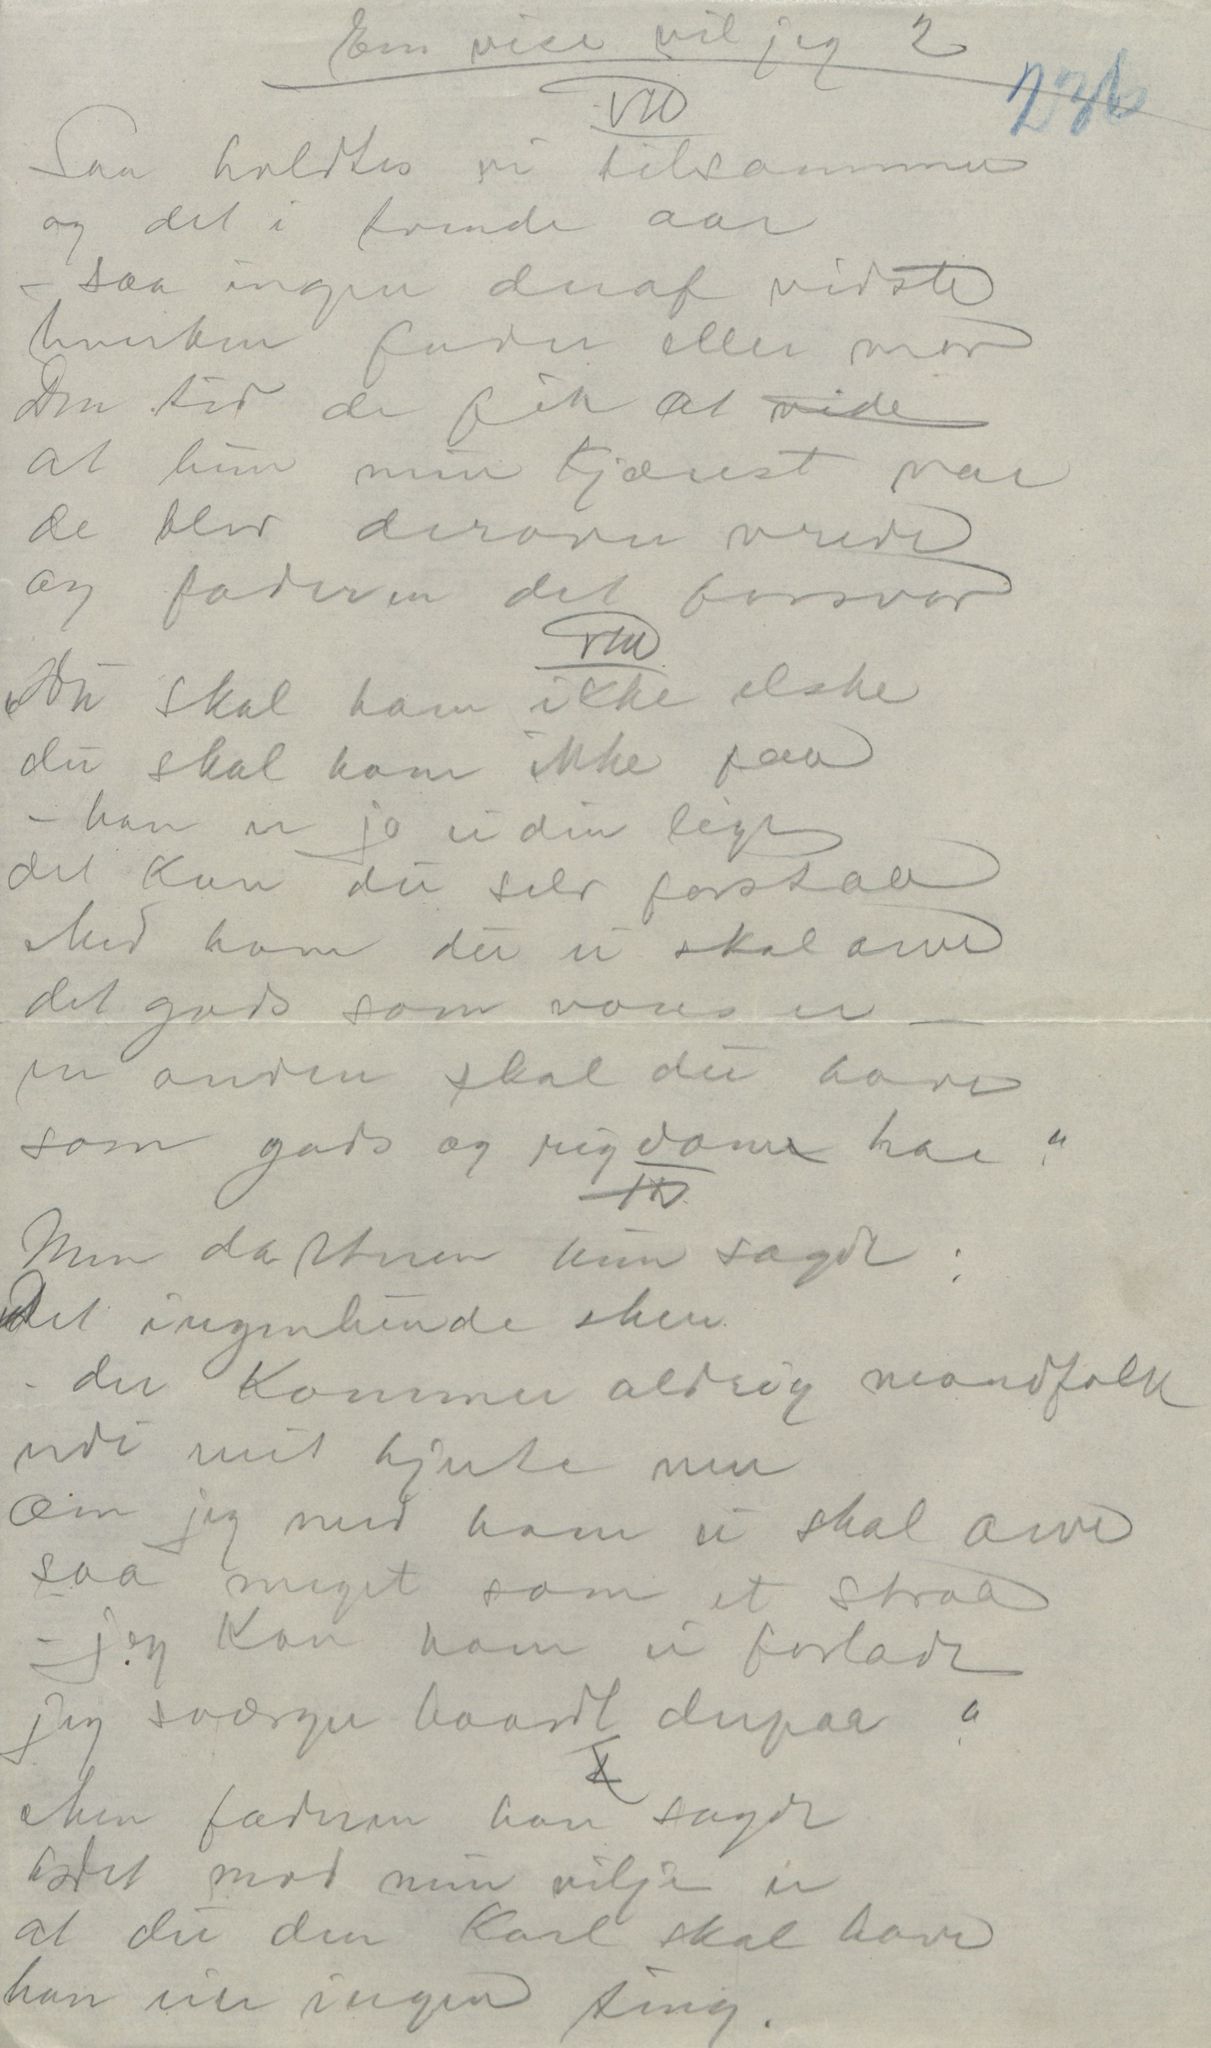 En vise vil jeg 2
236
VII
Saa holdtes vi tilsammen
og det i trende aar
- saa ingen deraf vidste
hverken fader eller mor
Den tid de fik at vide
at hun min kjærest var
de blev derover vrede
og faderen det forsvor
VIII
"Du skal ham ikke elske
du skal ham ikke faa
- han er jo ei din lige
det kan du selv forstaa
Med ham du ei skal arve
det gods som vores er -
en anden skal du have
som gods og rigdome har"
IX
Men datteren hun sagde:
"Det ingenlunde sker
- der kommer aldrig mandfolk
udi mit hjerte mer
Om jeg med ham ei skal arve
saa meget som et straa
- jeg kan ham ei forlade
jeg sværger haardt derpaa"
X
Men faderen han sagde
"Det mod min vilje er
at du den karl skal have
han eier ingen ting.